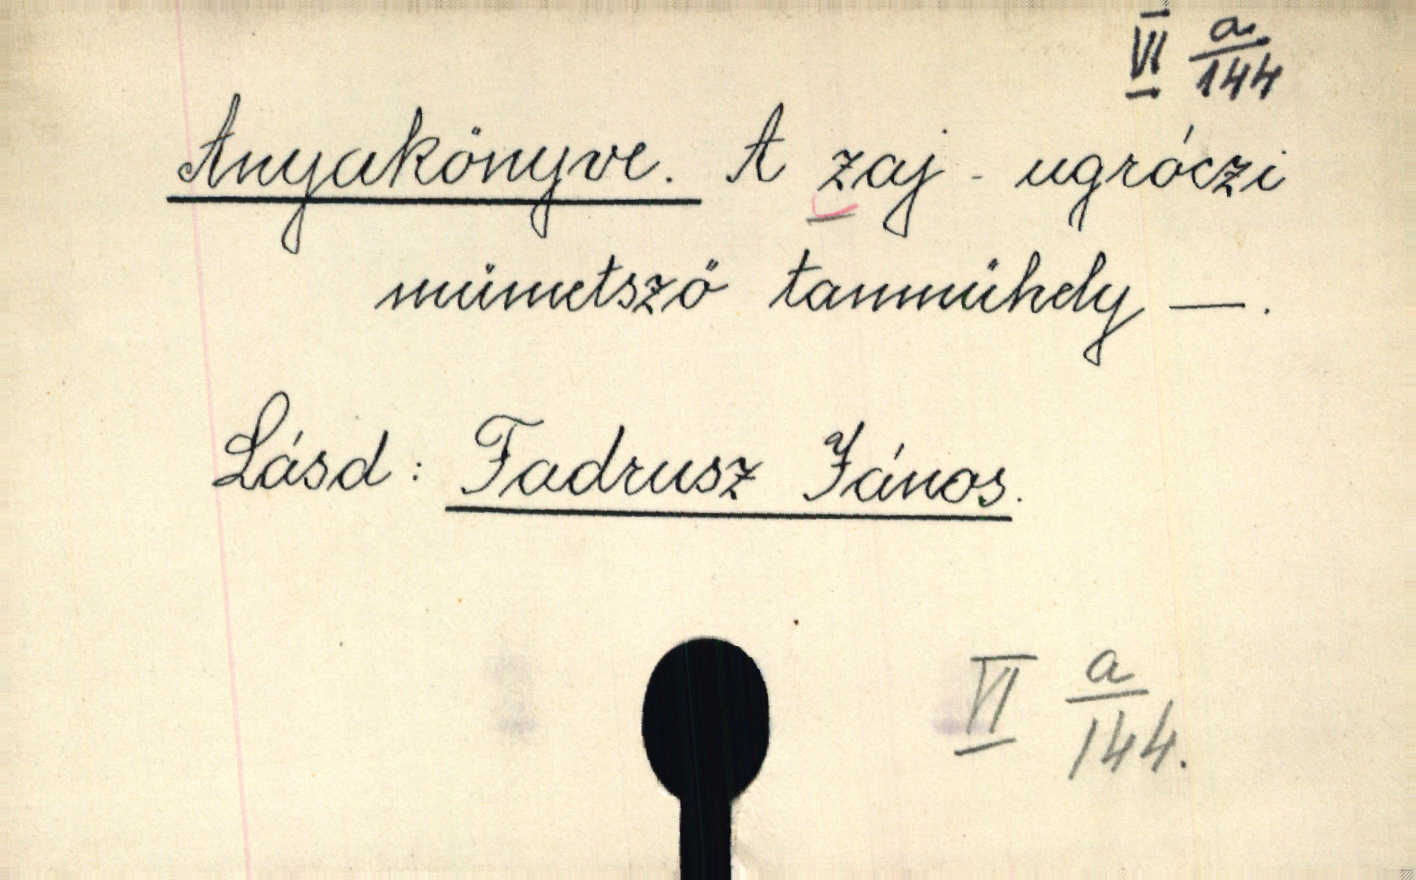 VI a/144
Anyakönyve. A zaj-ugróczi
műmetsző tanműhely —.
Lásd: Fadrusz János.
VI a/144.